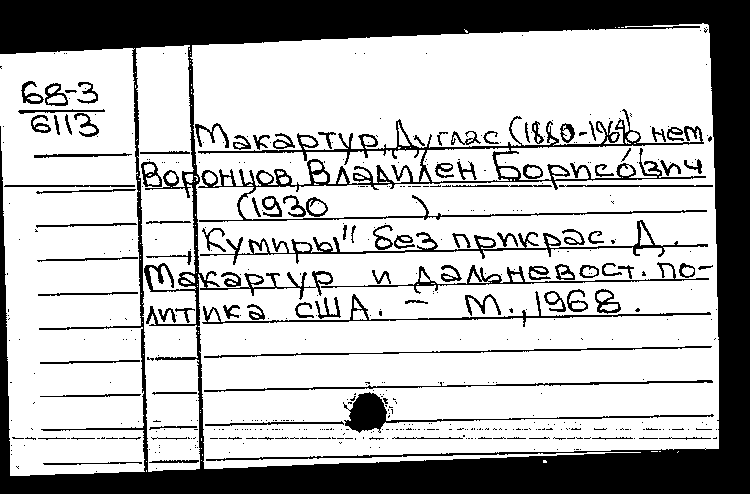 68-3
6113
Макартур, Дуглас (1880-1964) о нем.
Воронцов, Владилен Борисович
(1930 ).
"Кумиры" без прикрас. Д.
Макартур и дальневост. по-
литика США. - М., 1968.